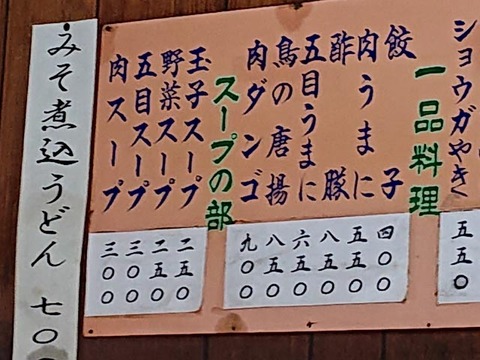 ショウガやき 五五〇
一品料理
餃子 四〇〇
肉うまに 五五〇
酢豚 八五〇
五目うまに 六五〇
鳥の唐揚 八五〇
肉ダンゴ 九〇〇
スープの部
玉子スープ 二五〇
野菜スープ 二五〇
五目スープ 三〇〇
肉スープ 三〇〇
みそ煮込うどん 七〇〇